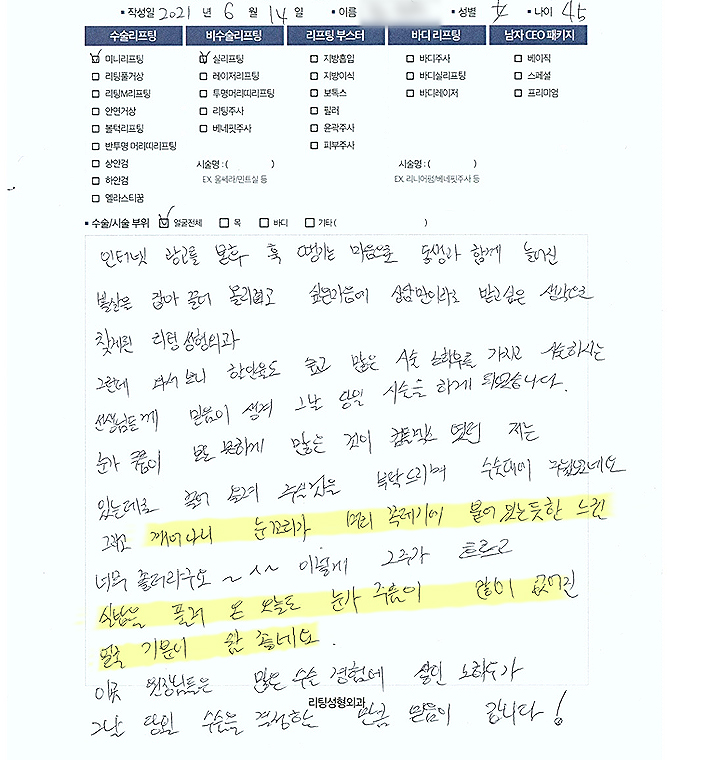 ▪ 작성일 2021 년 6 월 14 일 ▪ 이름 ▪ 성별 女 ▪ 나이 45
수술리프팅 비수술리프팅 리프팅 부스터 바디 리프팅 남자 CEO 패키지
미니리프팅 실리프팅 지방흡입 바디주사 베이직
리팅풀거상 레이저리프팅 지방이식 바디실리프팅 스페셜
리팅M리프팅 투명머리띠리프팅 보톡스 바디레이저 프리미엄
안면거상 리팅주사 필러
볼턱리프팅 베네핏주사 윤곽주사
반투명 머리띠리프팅 피부주사
상안검 시술명 : ( ) 시술명 : ( )
하안검 EX. 울쎄라/민트실 등 EX. 리니어펌/베네핏주사 등
엘라스티꿈
▪ 수술/시술 부위 얼굴전체 목 바디 기타 ( )
인터넷 광고를 본후 혹 땡기는 마음으로 동생과 함께 늘어진
볼살을 잡아 끌어 올리고 싶은마음에 상담만이라도 받고싶은 생각으로
찾게된 리팅성형외과
그런데 와서 보니 할인율도 좋고 많은 시술 노하우를 가지고 시술하시는
선생님들께 믿음이 생겨 그날 당일 시술을 하게 되었습니다.
눈가 주름이 많은 것이 였던 저는
있는데로 끌어 올려 주십사 부탁드리며 수술대에
그리고 깨어나니 눈꼬리가 머리 꼭데기에 붙어 있는듯한 느낀
너무 졸려라구요 ~ ^^ 이렇게 2주가 흐르고
실밥을 풀러 온 오늘도 눈가 주름이 많이 없어진
얼굴 기분이 참 좋네요.
이곳 원장님들은 많은 수술 경험에 쌓인 노하우가
리팅성형외과
그날 당일 수술을 결정하는 만큼 믿음이 갑니다!